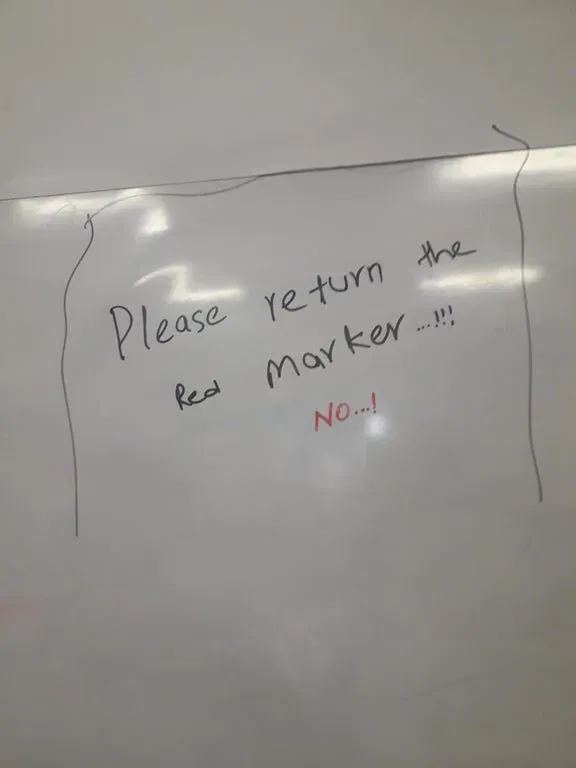 Please return the
Red marker...!!!
NO...!